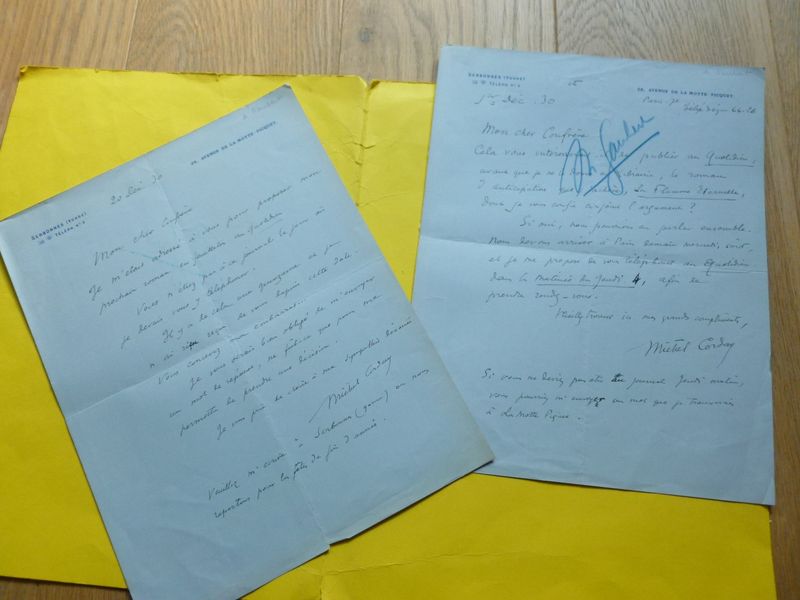 SERBONNES (YONNE)
TÉLÉPH. N° 4
28, AVENUE DE LA MOTTE-PICQUET
20 Déc. 30
Mon cher Confrère
Je m'étais adressé à vous pour proposer mon
prochain roman en feuilleton au Quotidien
Vous n'étiez pas à ce journal le jour où
je devais vous y téléphoner.
Il y a de cela une quinzaine et je
n'ai rien reçu de vous depuis cette date.
Vous concevez mon embarras.
Je vous serais bien obligé de m'envoyer
un mot de réponse, ne fût-ce que pour me
permettre de prendre une décision.
Je vous prie de croire à ma sympathie dévouée
Michel Corday
Veuillez m'écrire à Serbonnes (Yonne) où nous
repartons pour les fêtes de fin d'année.
SERBONNES (YONNE)
TÉLÉPH. N° 4
28, AVENUE DE LA MOTTE-PICQUET
1er Déc. 30
Paris 7e
Mon cher Confrère
Cela vous publier au Quotidien,
avant que je librairie, le roman
d'anticipation La Flamme Éternelle,
dont je vous confie ci-joint l'argument ?
Si oui, nous pourrions en parler ensemble.
Nous devons arriver à Paris demain mercredi, soir,
et je me propose de vous téléphoner au Quotidien
dans la matinée du jeudi 4, afin de
prendre rendez-vous.
Veuillez trouver ici mes grands compliments,
Michel Corday
Si vous ne deviez pas être au journal jeudi matin,
vous pourriez m'envoyer un mot que je trouverais
à La Motte Picquet.